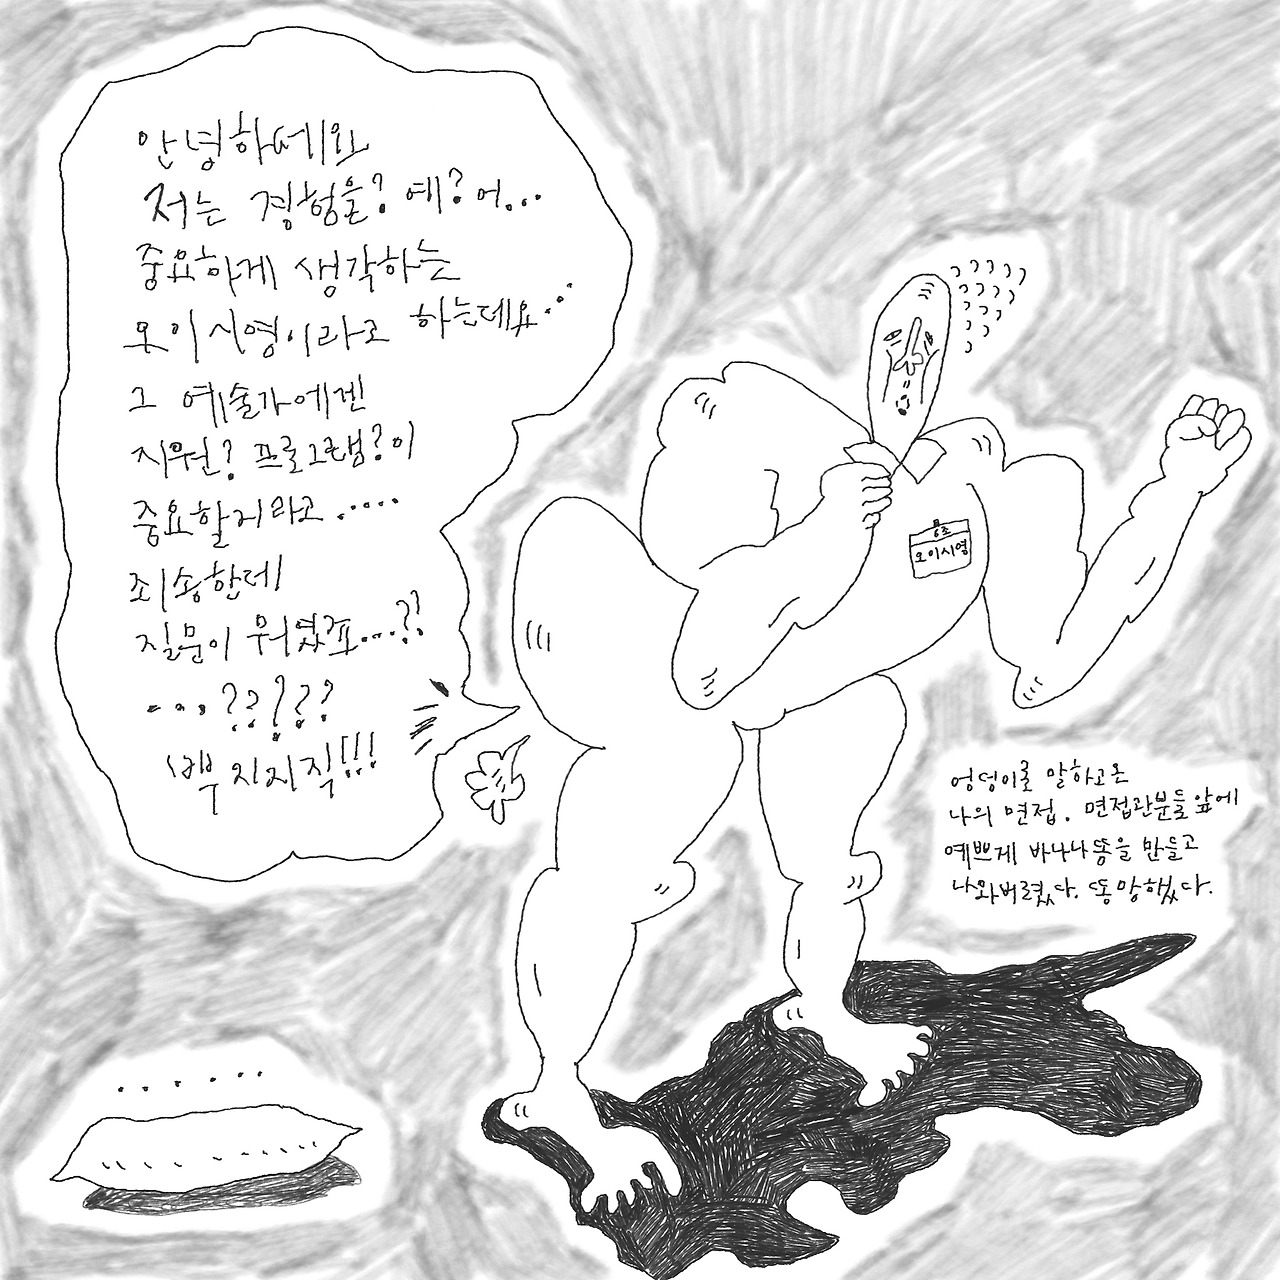 안녕하세와
저는 경험을? 예? 어...
중요하게 생각하는
오이시영이라고 하는데요...
그 예술가에겐
지원? 프로그램?이
중요할거라고 .....
죄송한데
질문이 뭐였죠...??
...?????
뿌지지직!!!
6조
오이시영
엉덩이로 말하고온
나의 면접. 면접관분들 앞에
예쁘게 바나나똥을 만들고
나와버렸다. 똥망했다.
......